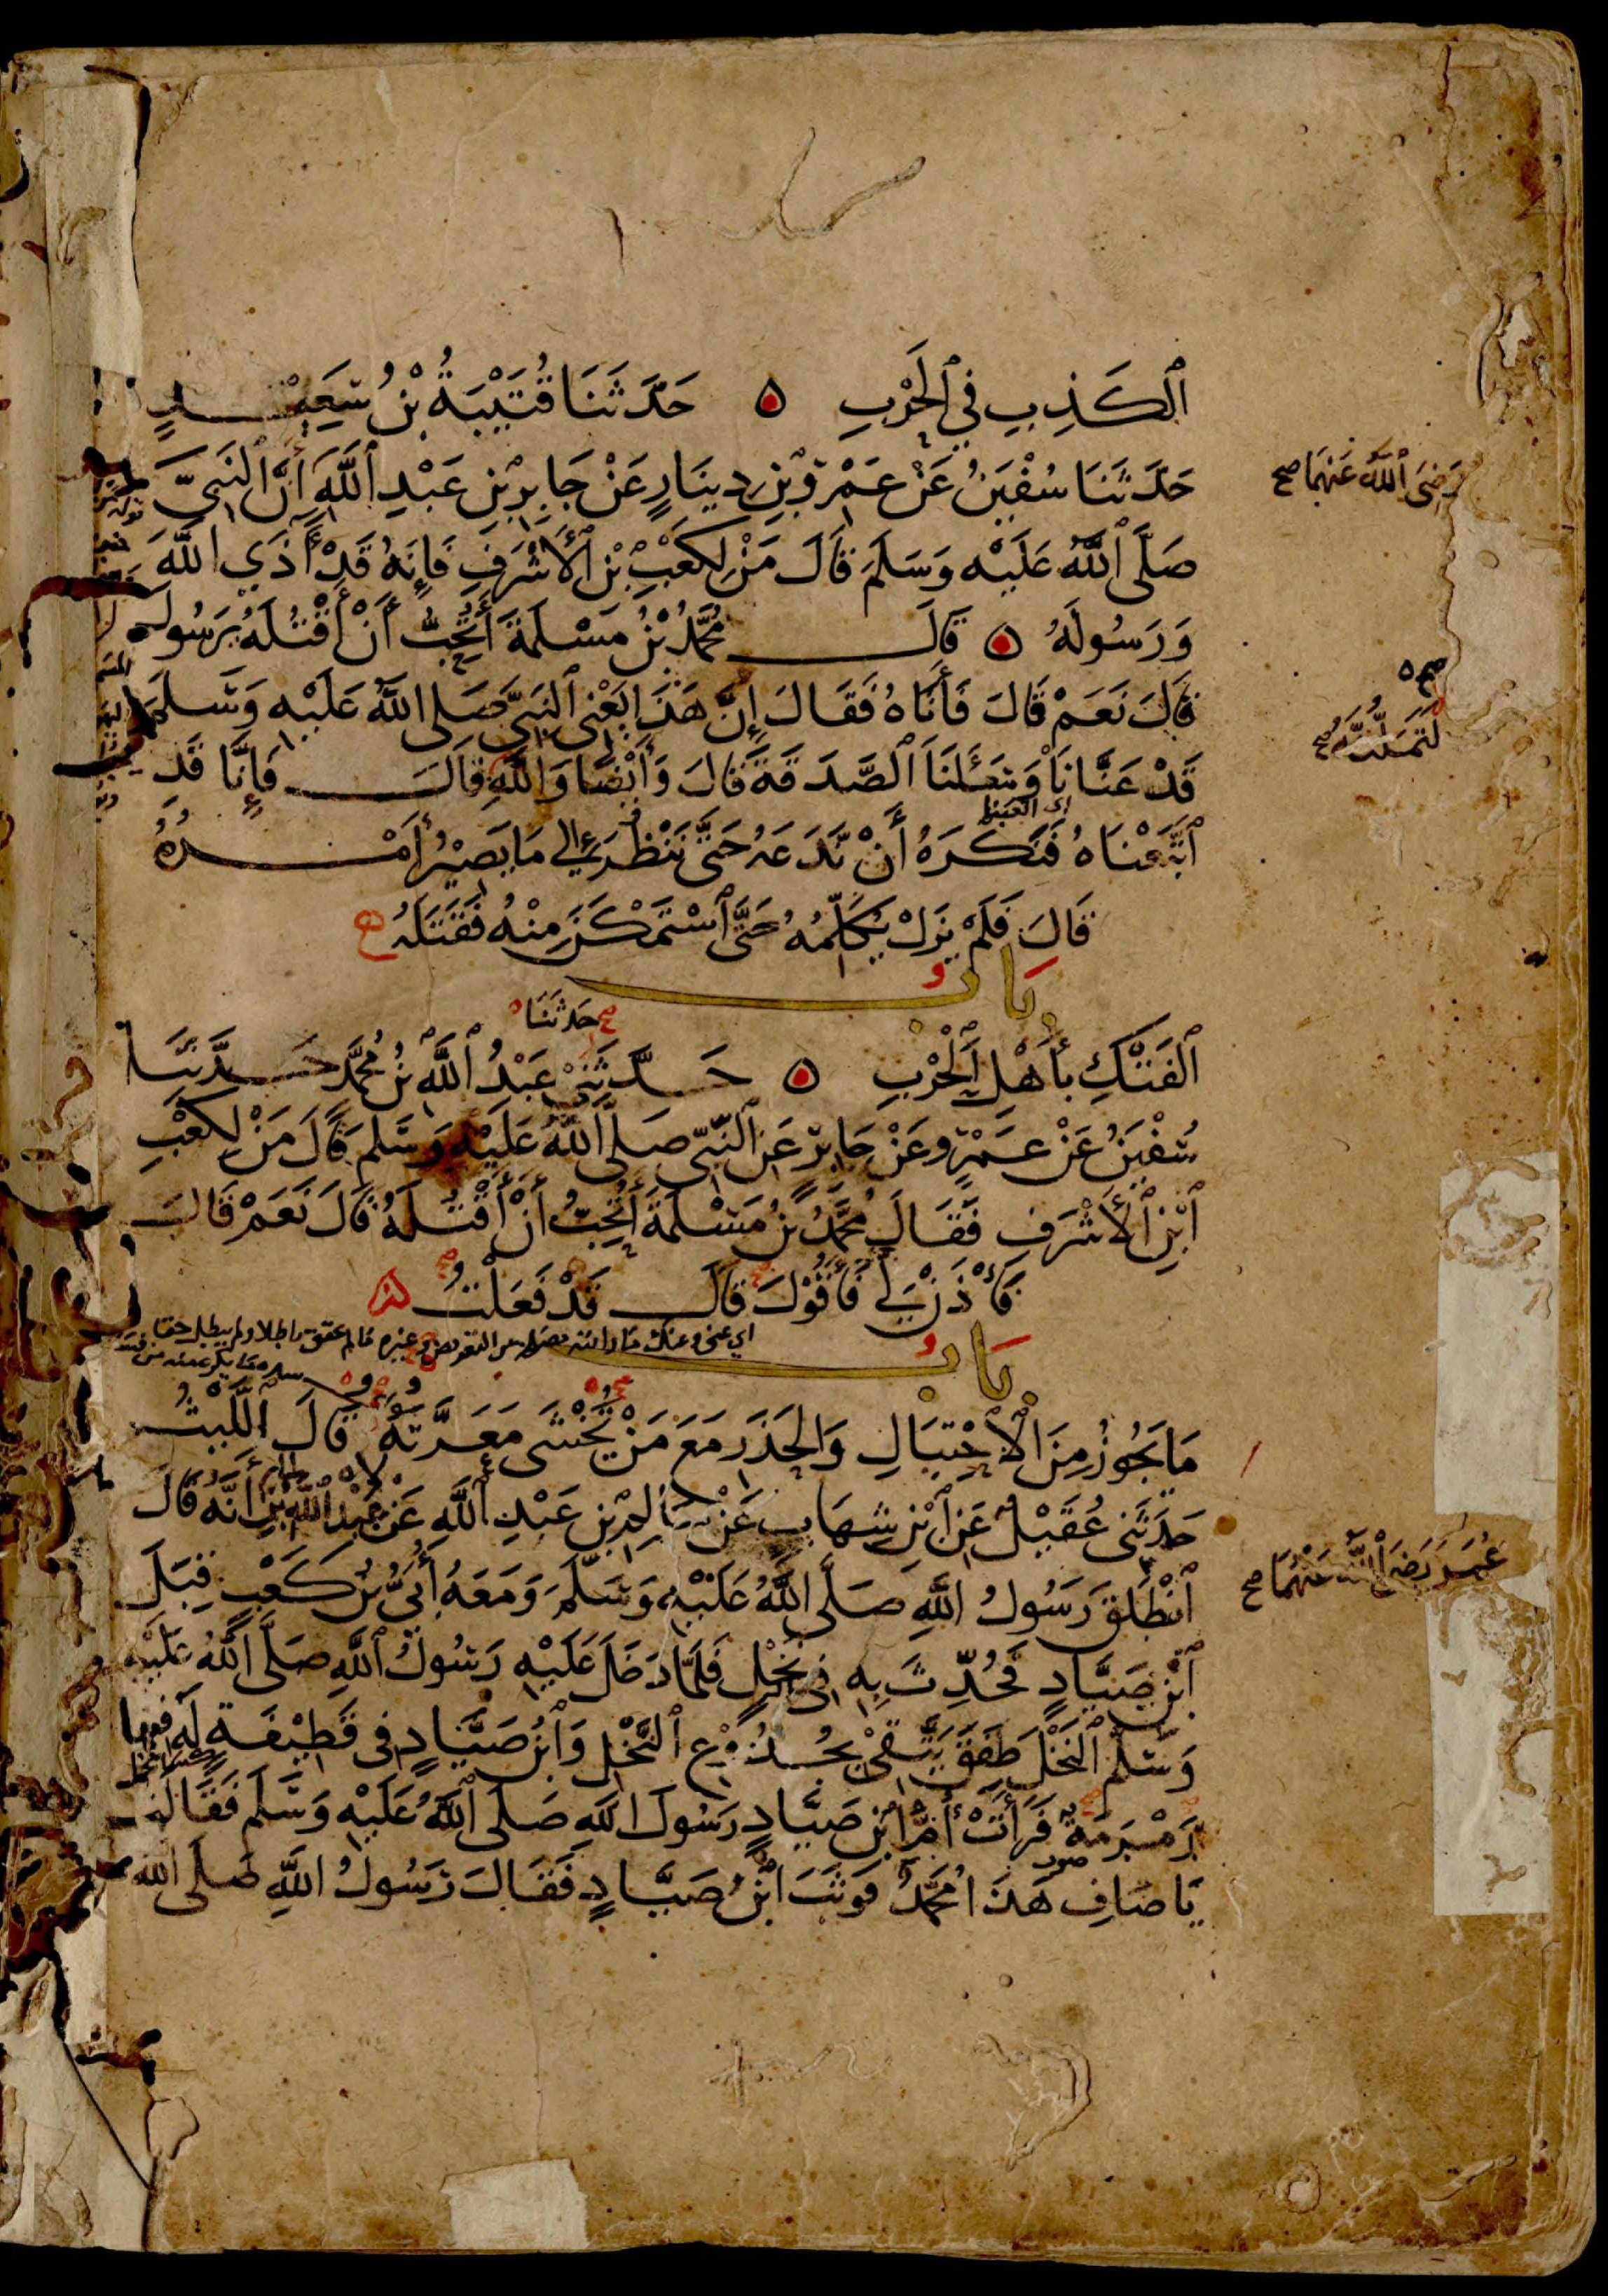 ٱلْكَذِبِ فِي ٱلْحَرْبِ ۵ حَدَّثَنَا قُتَيْبَةُ بْنُ سَعِيدٍ
حَدَّثَنَا سُفْيٰنُ عَنْ عَمْرِو بْنِ دِينَارٍ عَنْ جَابِرِ بْنِ عَبْدِ ٱللَّهِ أَنَّ ٱلنَّبِيَّ
رَضِيَ ٱللَّهُ عَنْهُمَا صح
صَلَّى ٱللَّهُ عَلَيْهِ وَسَلَّمَ قَالَ مَنْ لِكَعْبِ بْنِ ٱلْأَشْرَفِ فَإِنَّهُ قَدْ أَذَي اللَّهَ
وَرَسُولَهُ ۵ قَالَ مُحَمَّدُ بْنُ مَسْلَمَةَ أَتُحِبُّ أَنْ أَقْتُلَهُ يَرَسُولَ
قَالَ نَعَمْ قَالَ فَأَتَاهُ فَقَالَ إِنَّ هَذَا يَعْنِي ٱلنَّبِيَّ صَلَّى اللَّهُ عَلَيْهِ وَسَلَّمَ
قَدْ عَنَّانَا وَسَئَلَنَا ٱلصَّدَقَةَ قَالَ وَأَيْضًا وَاللَّهِ قَالَ فَإِنَّا قَدِ
لَتَمَلُّنَّهُ صح
ٱتَّبَعْنَاهُ فَنَكْرَهُ أَنْ نَدَعَهُ حَتَّى نَنْظُرَ إِلى مَا يَصِيْرُ أَمْرُهُ
قَالَ فَلَمْ يَزَلْ يُكَلِّمُهُ حَتَّى ٱسْتَمْكَنَ مِنْهُ فَقَتَلَهُ
بَابُ
حَدثَنَا
ٱلْفَتْكِ بِأَهْلِ ٱلْحَرْبِ ۵ حَدَّثَنِيْ عَبْدُ ٱللَّهِ بْنُ مُحَمَّدٍ حَدَّثَنَا
سُفْيٰنُ عَنْ عَمْرٍو عَنْ جَابِرٍ عَنِ ٱلنَّبِيِّ صَلَّى اللَّهُ عَلَيْهِ وَسَلَّمَ قَالَ مَنْ لِكَعْبِ
ٱبْنِ ٱلْأَشْرَفِ فَقَالَ مُحَمَّدُ بْنُ مَسْلَمَةَ أَتُحِبُّ أَنْ أَقْتُلَهُ قَالَ نَعَمْ قَالَ
فَأْذَنْ لِي فَأَقُوْلَ قَالَ قَدْ فَعَلْتُ
بَابُ
مَا يَجُوزُ مِنَ ٱلْاِحْتِيَالِ وَالْحَذَرِ مَعَ مَنْ يُخْشَى مَعَرَّتُهُ قَالَ ٱللَّيْثُ
حَدَّثَنِي عُقَيْلٌ عَنِ ٱبْنِ شِهَابٍ عَنْ سَالِمِ بْنِ عَبْدِ ٱللَّهِ عَنْ عَبْدِ اللَّهِ بْنِ أَنَّهُ قَالَ
عُمَرَ رَضِيَ ٱللَّهُ عَنْهُمَا صح
ٱنْطَلَقَ رَسُولُ اللَّهِ صَلَّى اللَّهُ عَلَيْهِ وَسَلَّمَ وَمَعَهُ أُبَيُّ بْنُ كَعْبٍ قِبَلَ
ٱبْنِ صَيَّادٍ فَحُدِّثَ بِهِ فِي نَخْلٍ فَلَمَّا دَخَلَ عَلَيْهِ رَسُولُ ٱللَّهِ صَلَّى اللَّهُ عَلَيْهِ
وَسَلَّمَ ٱلنَّخْلَ طَفِقَ يَتَّقِيْ بِجُذُوْعِ ٱلنَّخْلِ وَٱبْنُ صَيَّادٍ فِي قَطِيْفَةٍ لَهُ فِيهَا
رَمْرَمَةٌ فَرَأَتْ أُمُّ ابْنِ صَيَّادٍ رَسُولَ اللَّهِ صَلَّى ٱللَّهُ عَلَيْهِ وَسَلَّمَ فَقَالَتْ
يَا صَافِ هَذَا مُحَمَّدٌ فَوَثَبَ ابْنُ صَيَّادٍ فَقَالَ رَسُولُ اللَّهِ صَلَّى اللَّهُ